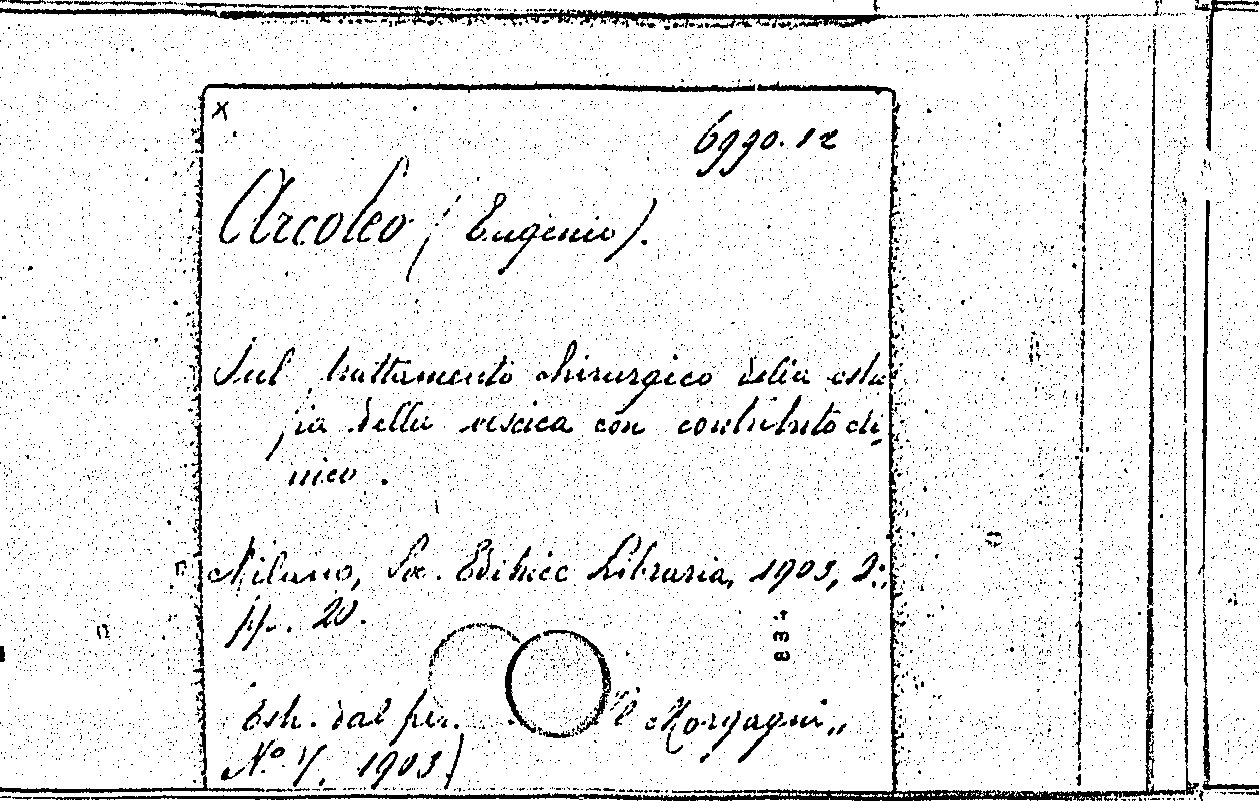 x
6990.12
Arcoleo (Eugenio).
Sul trattamento chirurgico della estro
fia della vescica con contributo cli
nico.
Milano, Soc. Editrice Libraria, 1903, 8:,
pp. 20.
834
Estr. dal per. "Il Morgagni„
N.o 7, 1903)